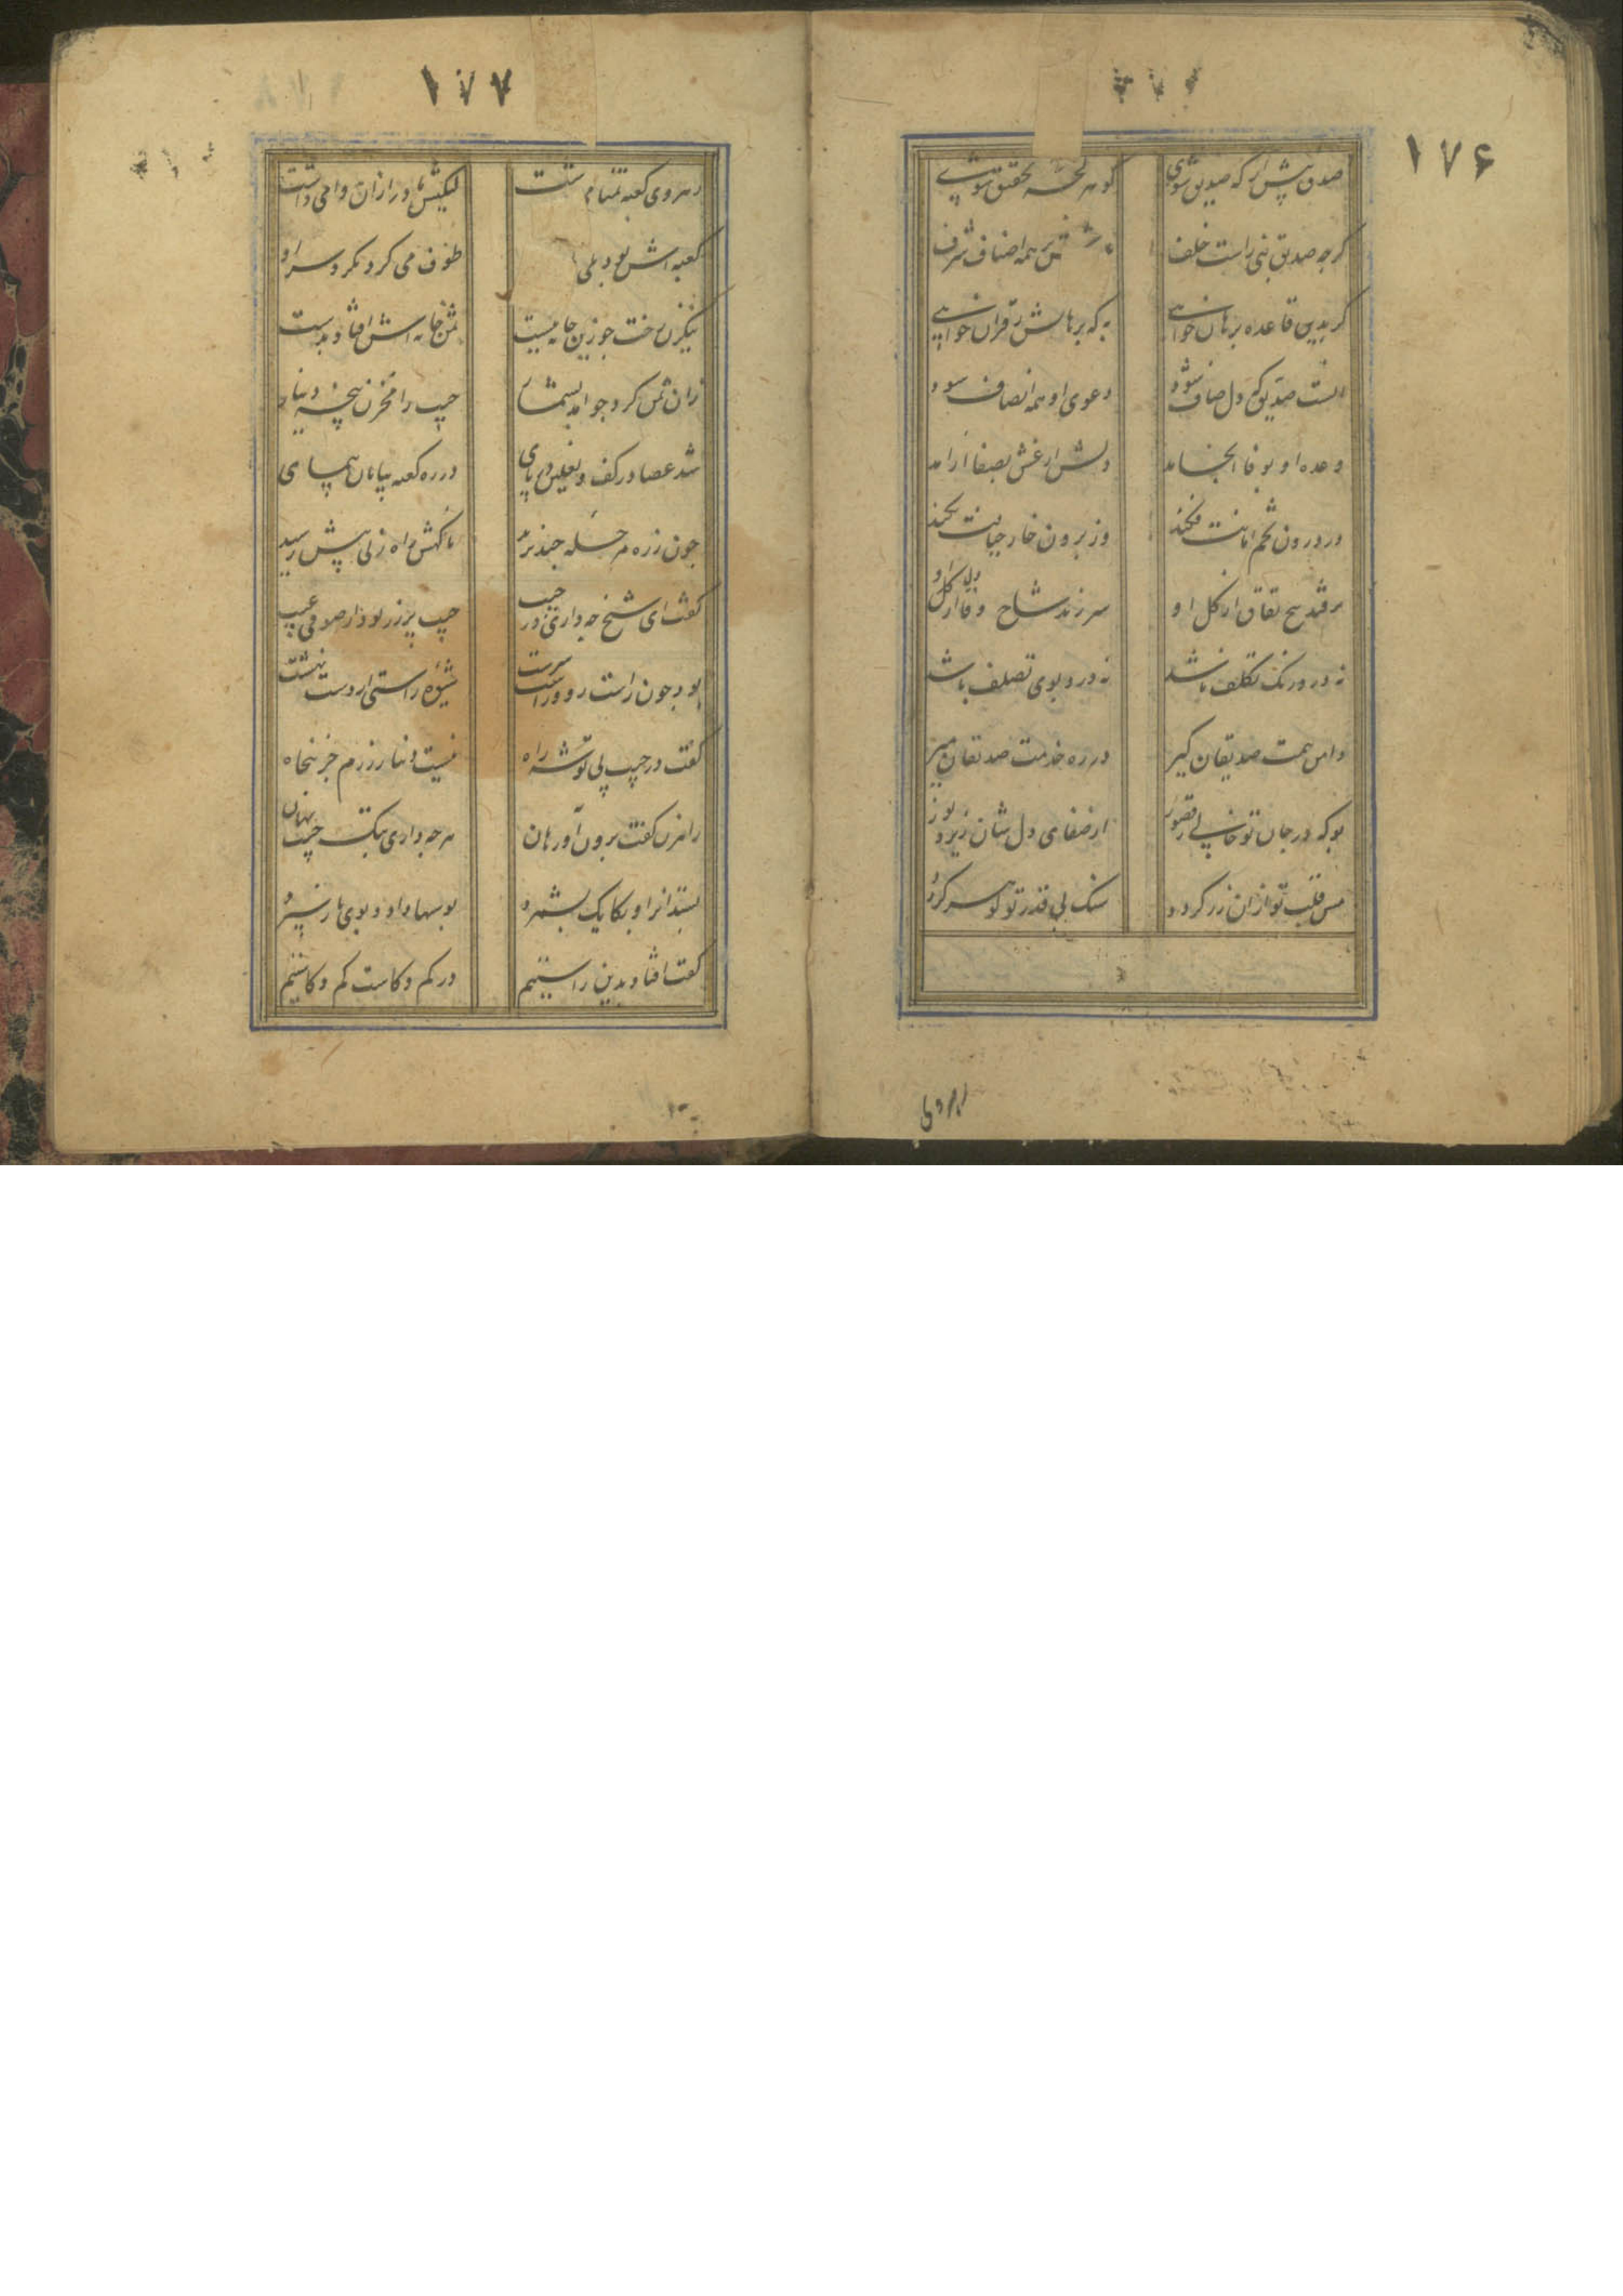 ۱۷۶
صدق پیش ار که صدیق شوی
گوهر لجه تحقیق شوی
کرچه صدیق نبی راست خلف
بر همه اصناف شرف
کر بدین قاعده برهان خواهی
به که برهانش ز قران خواهی
انست صدیق که دل صاف شود
دعوی او همه انصاف شود
وعده او بوفا انجامد
دلش از غش بصفا ارامد
در درون تخم امانت فکند
وز برون خار خیانت بکند
برفتد بیخ نفاق از کل او
سر زند شاخ وفا از دل او
نه درو رنک تکلف باشد
نه درو بوی تصلف باشد
دامن همت صدیقان کیر
در ره خدمت صدیقان میر
بو که در جان تو خالی ز قصور
از صفای دل شان زاید نور
مس قلب تو ازان زر کردد
سنک بی قدر تو کوهر کردد
رهروی
۱۷۷
رهروی کعبه تمنا می داشت
لیکنش مادر ازان وا می داشت
کعبه اش بود بلی
طوف می کرد بکرد سر او
نیکزن رخت چو زین خانه ببست
ثمن خانه اش افتاد بدست
زان ثمن کرد چو امد بشمار
جیب را مخزن پنجه دینار
شد عصا در کف و نعلین بپای
در ره کعبه بیابان پیمای
چون ز ره مرحله چند برید
ناکهش راه زنی پیش رسید
کفت ای شیخ چه داری در جیب
جیب پر زر بود از صوفی عیب
بود چون راست رو و راست سرشت
شیوه راستی از دست نهشت
کفت در جیب پی توشه راه
نیست دینار زرم جز پنجاه
راهزن کفت برون آور هان
هر چه داری بتک جیب نهان
بستد انرا و یکایک بشمرد
بوسها داد و بوی باز سپرد
کفت افتاد بدین راستیم
در کم و کاست کم و کاستیم